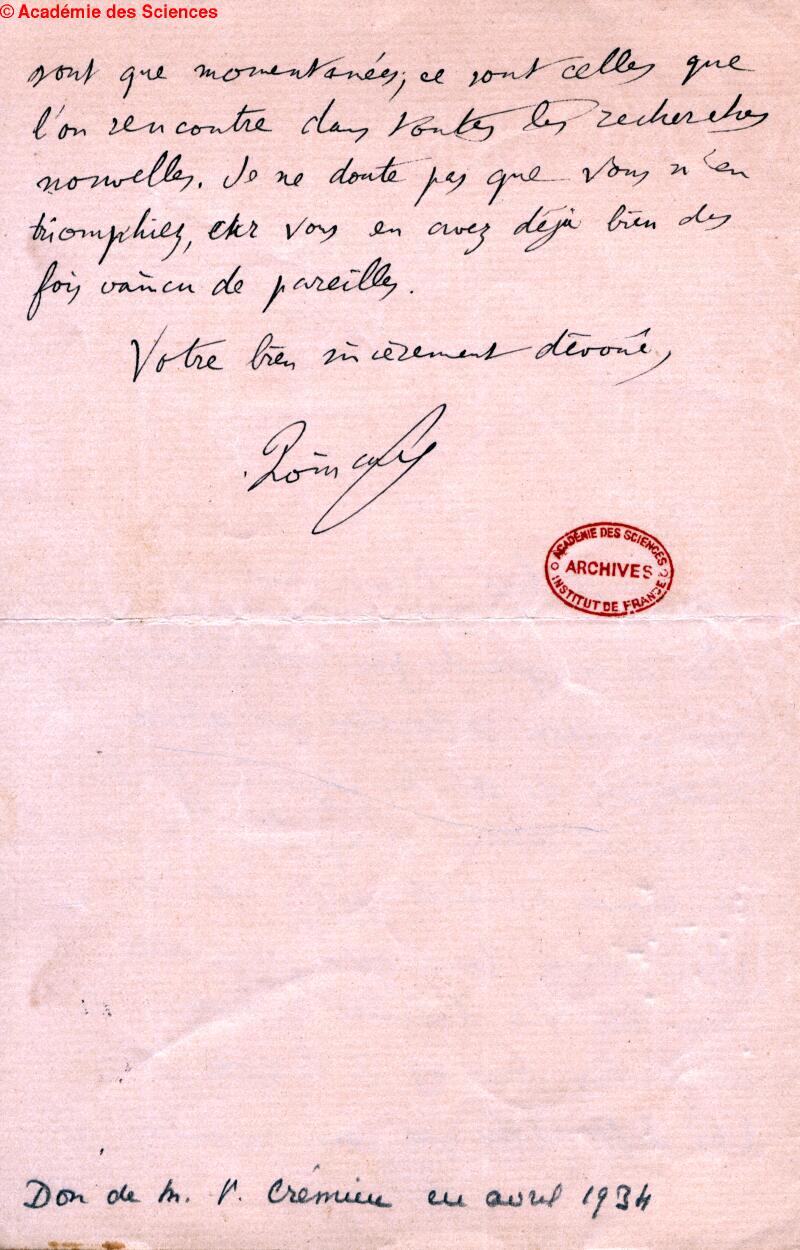 © Académie des Sciences
sont que momentanées; ce sont celles que
l'on rencontre dans toutes les recherches
nouvelles. Je ne doute pas que vous n'en
triomphiez, car vous en avez déjà bien des
fois vaincu de pareilles.
Votre bien sincèrement dévoué,
Poincaré
ACADÉMIE DES SCIENCES
ARCHIVES
INSTITUT DE FRANCE
Don de M. V. Crémieu en avril 1934